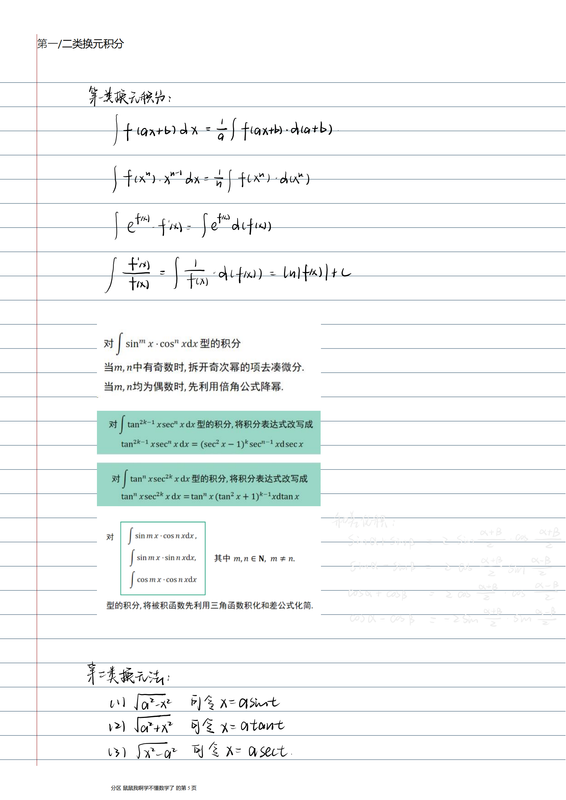 第一/二类换元积分
第一类换元积分:
∫ f(ax+b) dx = 1/a ∫ f(ax+b)·d(a+b)
∫ f(xⁿ)·xⁿ⁻¹ dx = 1/n ∫ f(xⁿ)·d(xⁿ)
∫ e^f(x)·f'(x) = ∫ e^f(x) d(f(x))
∫ f'(x)/f(x) = ∫ 1/f(x)·d(f(x)) = ln|f(x)|+C
对 ∫ sinᵐ x · cosⁿ xdx 型的积分
当m, n中有奇数时, 拆开奇次幂的项去凑微分.
当m, n均为偶数时, 先利用倍角公式降幂.
对 ∫ tan²ᵏ⁻¹ x secⁿ x dx 型的积分, 将积分表达式改写成
tan²ᵏ⁻¹ x secⁿ x dx = (sec² x − 1)ᵏ secⁿ⁻¹ xd sec x
对 ∫ tanⁿ x sec²ᵏ x dx 型的积分, 将积分表达式改写成
tanⁿ x sec²ᵏ x dx = tanⁿ x (tan² x + 1)ᵏ⁻¹xdtan x
∫ sin m x · cos n xdx ,
对 ∫ sin m x · sin n xdx, 其中 m, n ∈ N, m ≠ n.
∫ cos m x · cos n xdx
型的积分, 将被积函数先利用三角函数积化和差公式化简.
sinα + sinβ = 2 sin (α+β)/2 · cos (α-β)/2
cosα + cosβ = 2 cos (α+β)/2 · cos (α-β)/2
cosα - cosβ = -2 sin (α+β)/2 · sin (α-β)/2
第二类换元法:
(1) √a²-x² 可令 x=asint
(2) √a²+x² 可令 x=atant
(3) √x²-a² 可令 x=asect.
分区 鼠鼠我啊学不懂数学了 的第 1 页